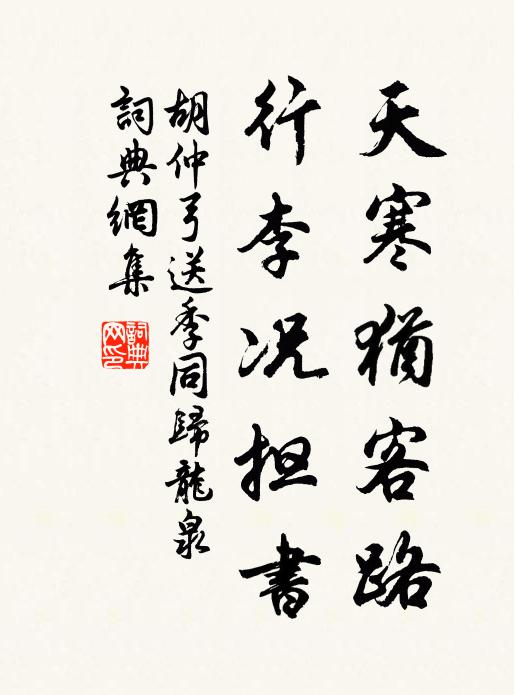 天寒猶客路
行李况担書
胡仲弓送季同歸龍泉
詞典網集
詞典网印